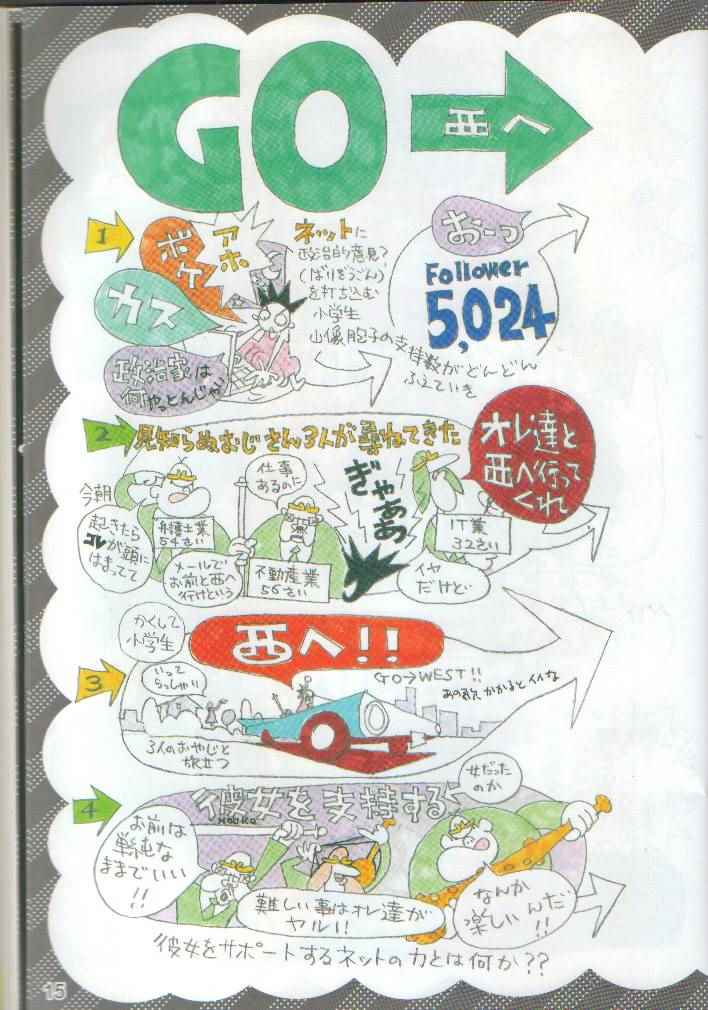 GO
西へ
1
アホ
ボケ
カス
政治家は
何やっとんじゃ
ネットに
政治的意見?
(ばりぞうごん)
を打ち込む
小学生
山優胞子の支持数がどんどん
ふえていき
おーっ
Follower
5,024
2
見知らぬおじさん3人が尋ねてきた
今朝
起きたら
コレが頭に
はまってて
弁護士業
54さい
メールで
お前と西へ
行けという
仕事
あるのに
不動産業
56さい
ぎゃああ
オレ達と
西へ行って
くれ
IT業
32さい
イヤ
だけど
3
かくして
小学生
西へ!!
いって
らっしゃい
GO→WEST!!
あの歌かかるとイイな
3人のおやじと
旅立つ
4
彼女を支持する
女だった
のか
お前は
単純な
ままでいい
!!
難しい事はオレ達が
ヤル!!
なんか
楽しいんだ
!!
彼女をサポートするネットの力とは何か??
15